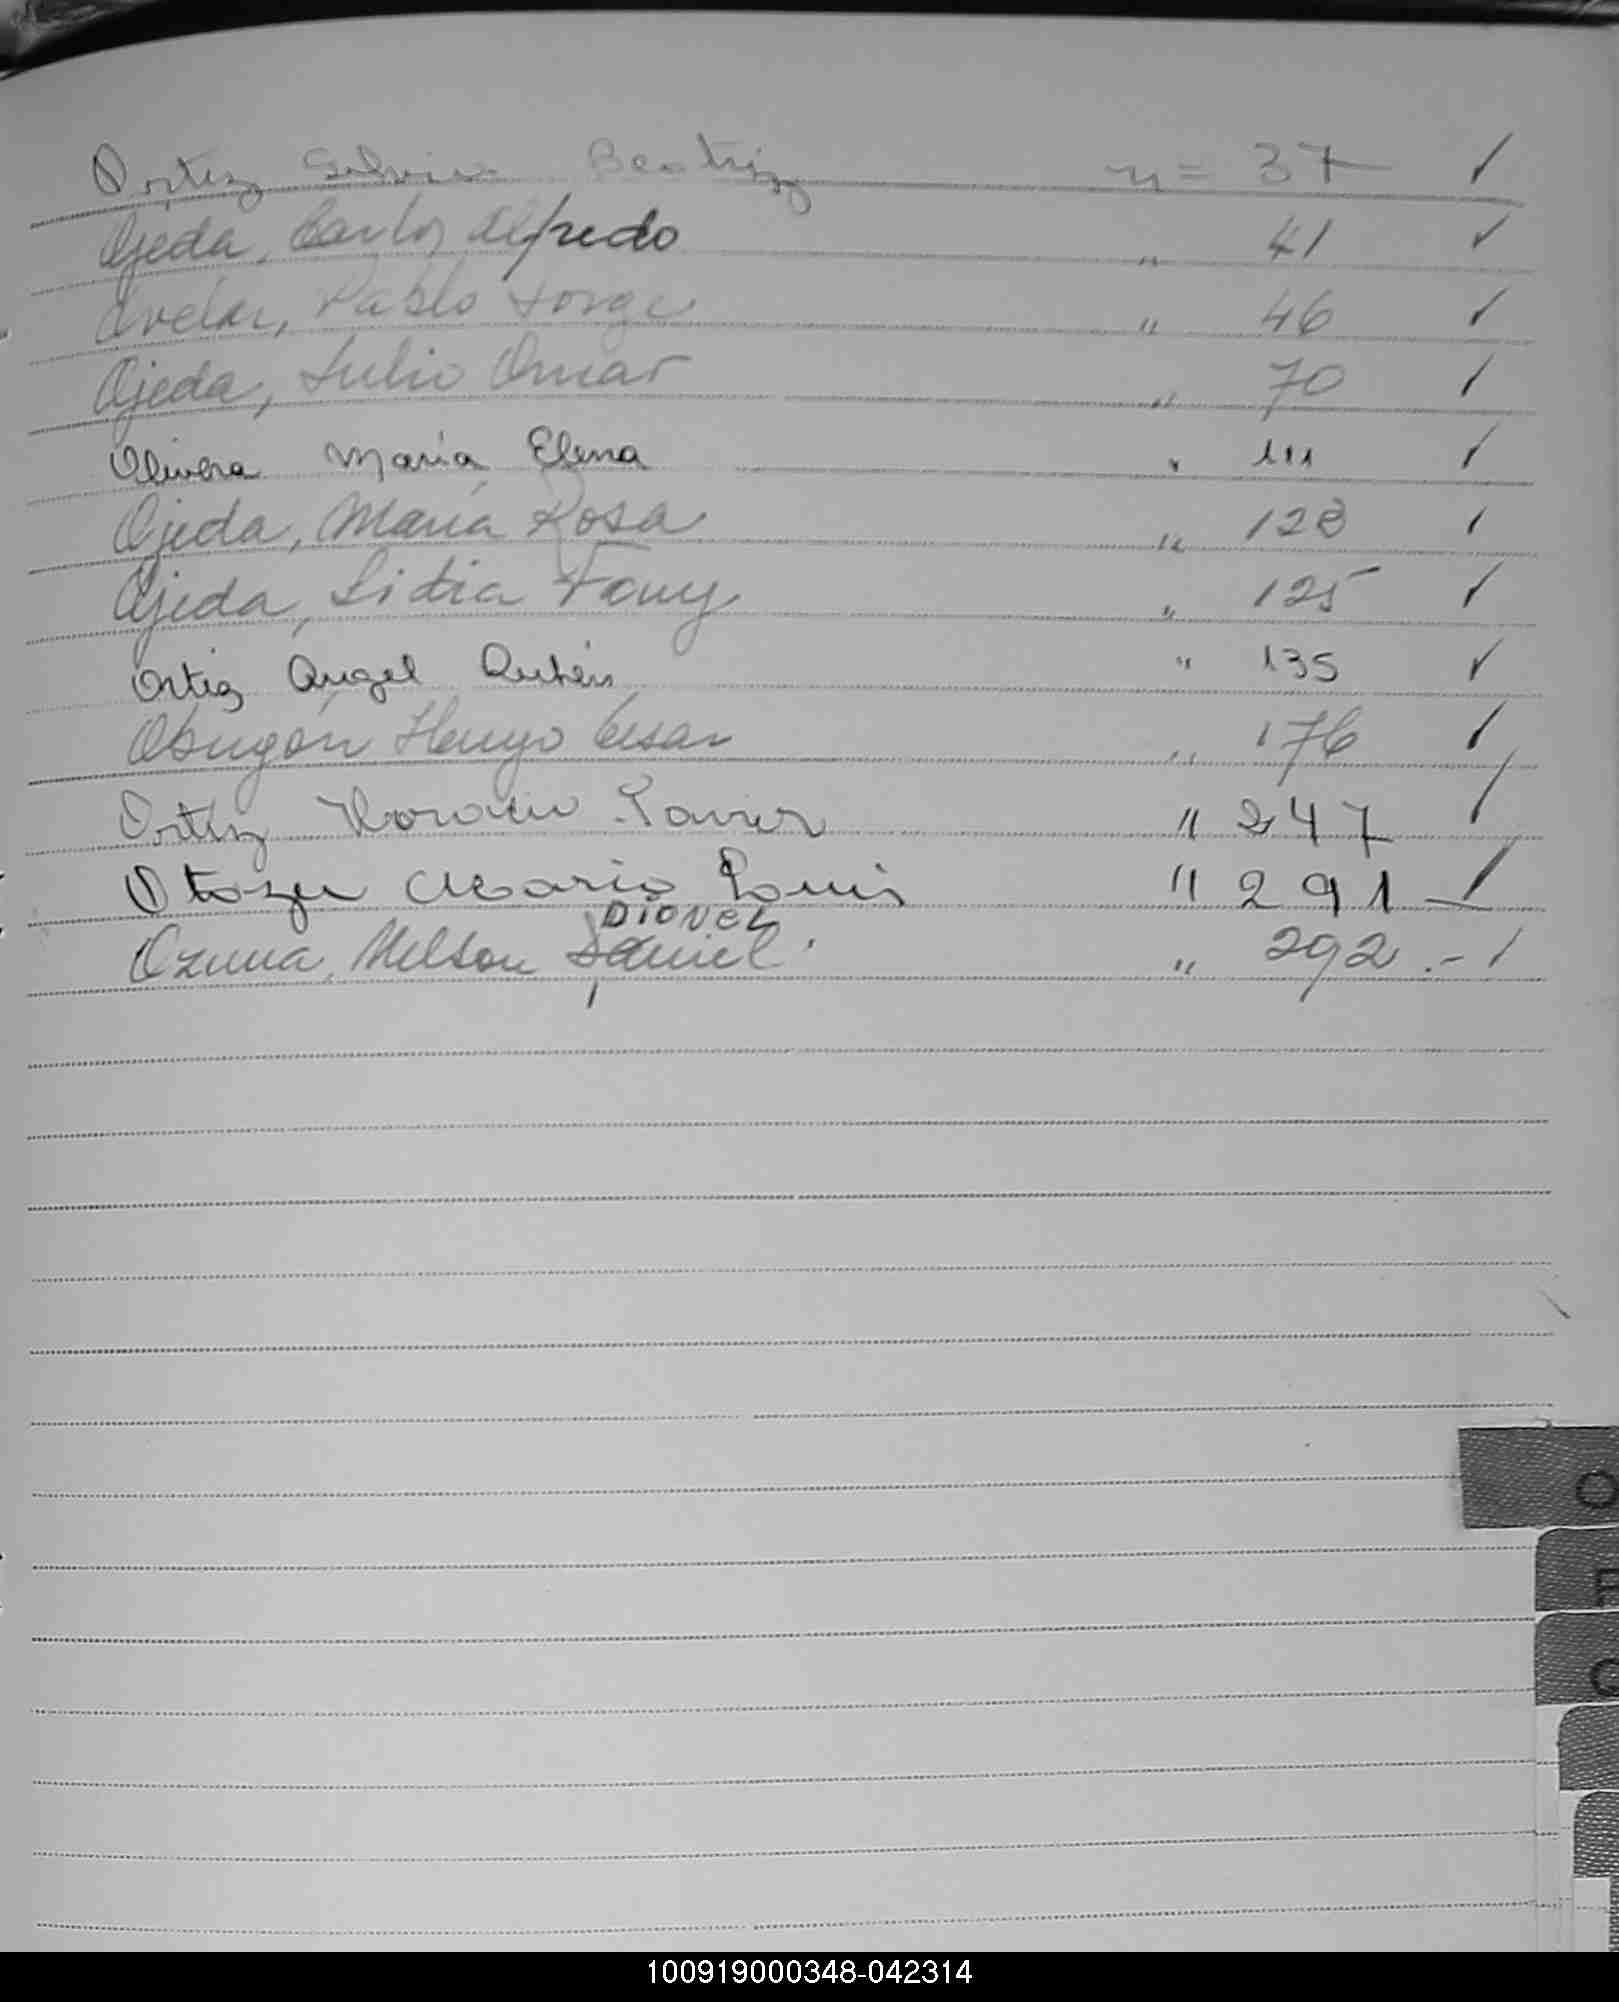 Ortiz Silvia Beatriz n= 37 ✓
Ojeda, Carlos Alfredo " 41 ✓
Ovelar, Pablo Jorge " 46 ✓
Ojeda, Julio Omar " 70 ✓
Olivera María Elena " 111 ✓
Ojeda, María Rosa " 123 ✓
Ojeda, Lidia Fany " 125 ✓
Ortiz Angel Rubén " 135 ✓
Obregón Hengo Cesar " 176 ✓
Ortiz Horacio Javier " 247 ✓
Mario Luis " 291 ✓
DIONEL
Ozuna, Nelson Daniel " 292.-
O
100919000348-042314